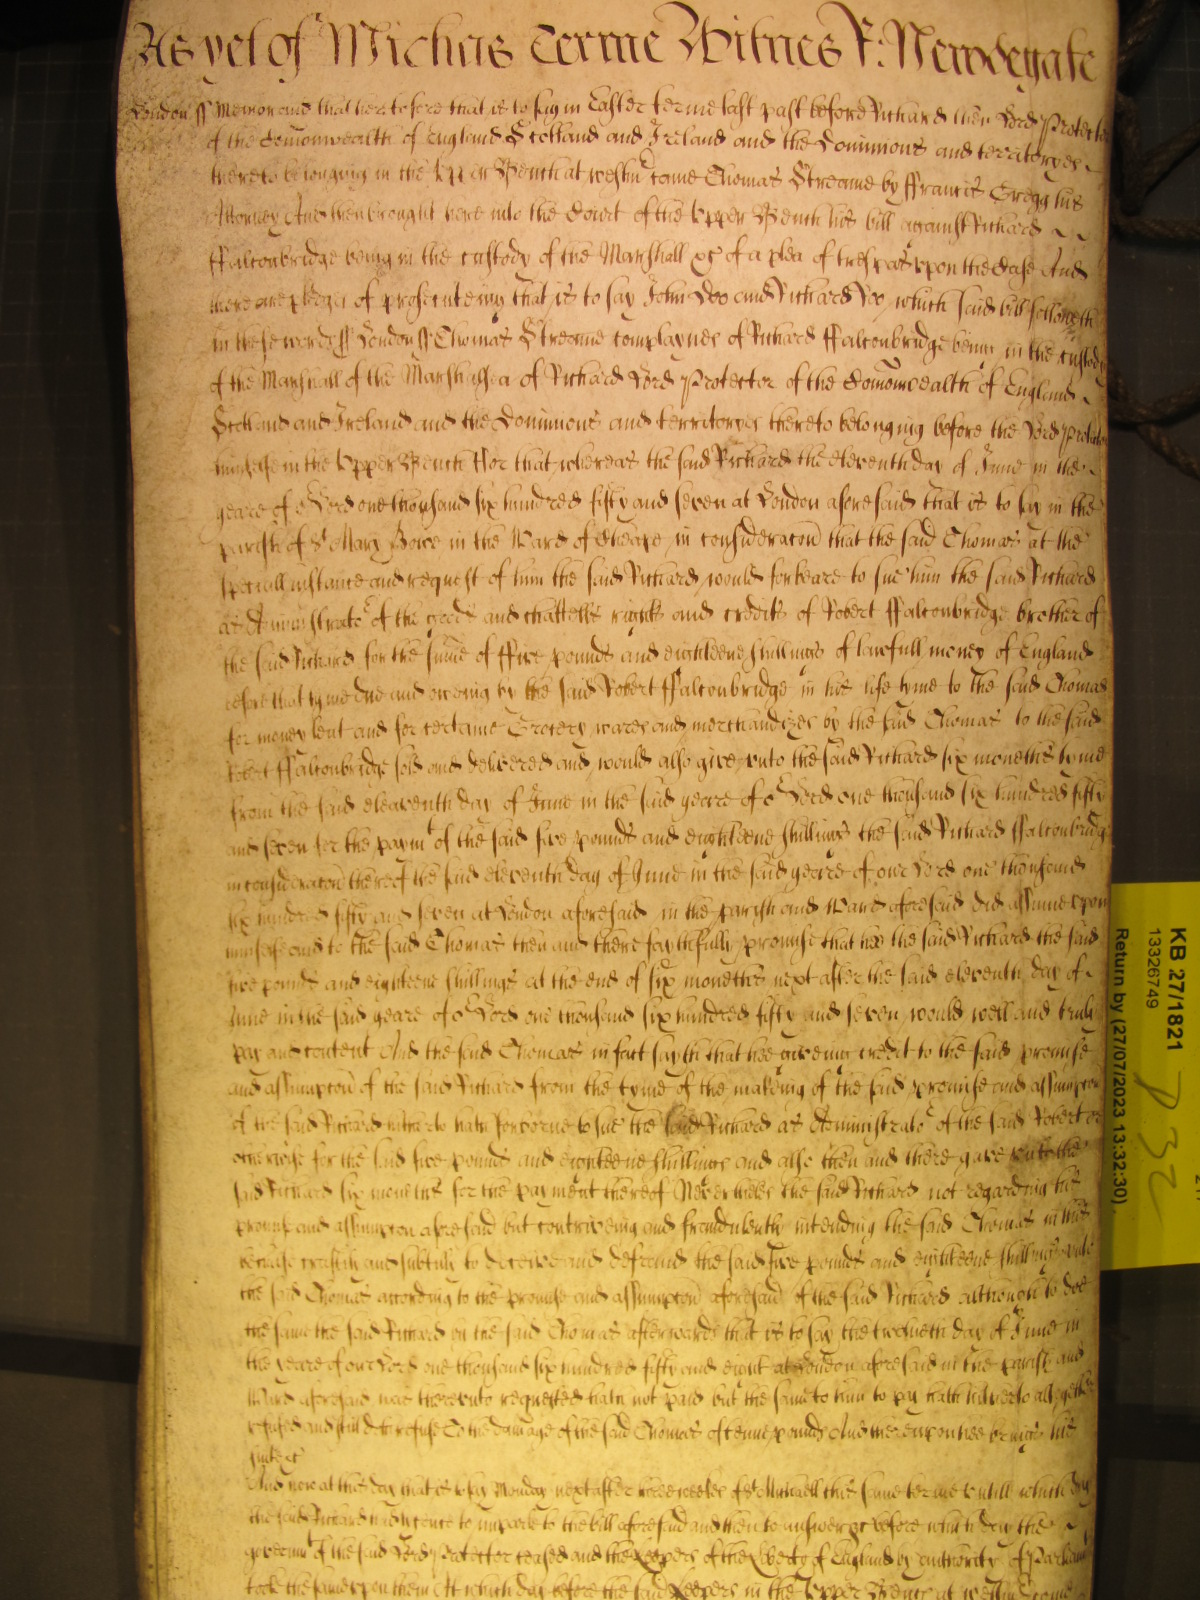 As yet of Michas Terme Witnes R: Newdegate
London ss Memorand that heretofore that is to say in Easter terme last past before Richard then Lord Protector
of the Comonwealth of England Scotland and Ireland and the Dominions and territoryes
thereto belonging in the Upper Bench at Westmr came Thomas Streame by Ffrancis Gregg his
Attorney And then brought here into the Court of the Upper Bench his bill against Richard
Ffalconbridge being in the custody of the Marshall &c of a plea of trespas upon the Case And
there are pledges of prosecuteing that is to say John Doo and Richard Roo, which said bill followeth
in these words ss London ss Thomas Streame complaynes of Richard Ffalconbridge being in the custody
of the Marshall of the Marshalsea of Richard Lord Protector of the Comonwealth of England
Scotland and Ireland and the Dominions and territoryes thereto belonging before the Lord Protector
himselfe in the Upper Bench Ffor that whereas the said Richard the eleventh day of June in the
yeare of or Lord one thousand six hundred fifty and seven at London aforesaid that is to say in the
parish of St Mary Bowe in the Ward of Cheape in consideracon that the said Thomas at the
speciall instance and request of him the said Richard would forbeare to sue him the said Richard
as Administrator of the goods and chattells rights and credits of Robert Ffalconbridge brother of
the said Richard for the sume of ffive pounds and eighteene shillings of lawfull money of England
before that tyme due and oweing by the said Robert Ffalconbridge in his life tyme to the said Thomas
for money lent and for certaine Grocery wares and merchandizes by the said Thomas to the said
Robert Ffalconbridge sold and delivered and would also give unto the said Richard six moneths tyme
from the said eleaventh day of June in the said yeare of or Lord one thousand six hundred fifty
and seven for the paymt of the said five pounds and eighteene shillings the said Richard Ffalconbridge
in consideracon thereof the said eleventh day of June in the said yeare of our Lord one thousand
six hundred fifty and seven at London aforesaid in the parish and Ward aforesaid did assume upon
himselfe and to the said Thomas then and there faythfully promise that hee the said Richard the said
five pounds and eighteene shillings at the end of six moneths next after the said eleventh day of
June in the said yeare of or Lord one thousand six hundred fifty and seven would well and truly
pay and content And the said Thomas in fact sayth that hee giveing credit to the said promise
and assumpcon of the said Richard from the tyme of the makeing of the said promise and assumpcon
of the said Richard hitherto hath forborne to sue the said Richard as Administrator of the said Robert or
otherwise for the said five pounds and eighteene shillings and also then and there gave unto the
said Richard six moneths for the payment thereof Neverthelesse the said Richard not regarding his
promise and assumpcon aforesaid but contriveing and fraudulently intending the said Thomas in this
behalfe craftily and subtily to deceive and defraud the said five pounds and eighteene shillings unto
the said Thomas according to the promise and assumpcon aforesaid of the said Richard although to doe
the same the said Richard by the said Thomas afterwards that is to say the twelveth day of June in
the yeare of our Lord one thousand six hundred fifty and eight at London aforesaid in the parish and
Ward aforesaid was thereunto requested hath not paid but the same to him to pay hath hitherto altogether
refused and still doth refuse To the damage of the said Thomas of tenne pounds And thereupon hee brings his
suite &c
And now at this day that is to say Monday next after three weekes of St Michaell this same terme untill which day
the said Richard had licence to imparle to the bill aforesaid and then to answer &c before which day the
governmt of the said Lord Protector ceased and the Keepers of the liberty of England by authority of Parliamt
tooke the same upon them At which day before the said Keepers in the Upper Bench at Westmr come
KB 27/1821
13326749
Return by (27/07/2023 13:32:30)